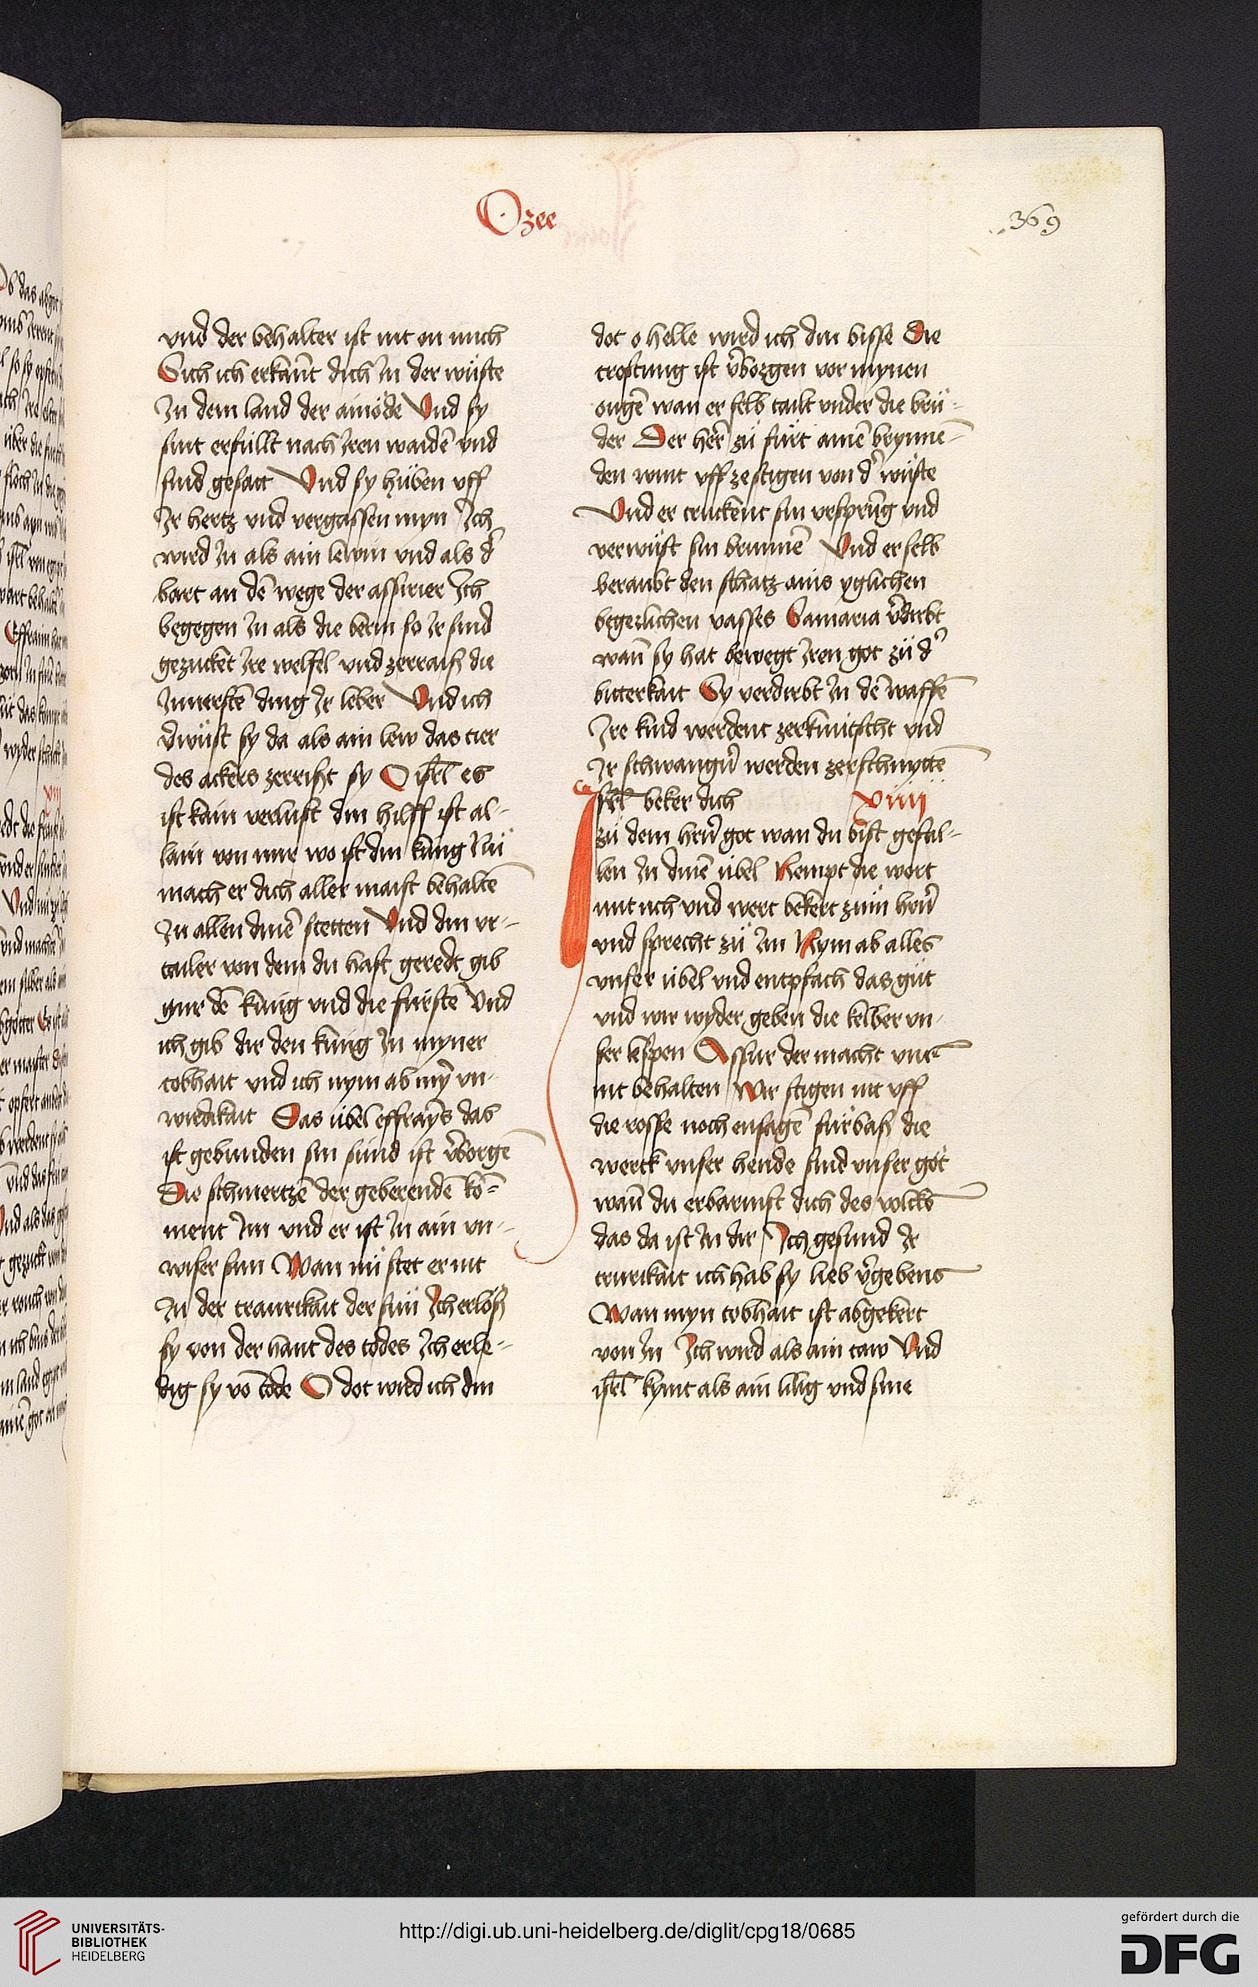 Ozee
369
vnd der behalter ist nit on mich
Sich ich erkant̄ dich In der wüste
In dem land der ainöde Vnd sy
sint erfüllt nach Iren waidē vnd
sind gesatt Vnd sy hůben vff
Ir hertz vnd vergassen myn Ich
wird In als ain lewin vnd als d'
bart an dē wege der assirier Ich
begegen In als die berin so Ir sind
gezucket Ire welfel vnd zerraiß die
Innersten ding Ir leber Vnd ich
v'wüst sy da als ain lew das tier
des ackers zerrißt sy O isrl̄ es
ist kain verlust din hilff ist al-
lain von mir wo ist din küng Nů
mach er dich aller maist behaltē
In allen dinē stetten Vnd din vr-
tailer von dem du hast geredt gib
mir dē küng vnd die fürstē Vnd
ich gib dir den küng In myner
tobhait vnd ich nym ab mȳ vn-
wirdikait Das übel effrayms das
ist gebunden sin sünd ist v'borgē
Die schmertzē der geberenden ko-
ment Im vnd er ist In ain vn-
wiser sun Wan nů stet er nit
In der traurikait der sün Ich erlöß
sy von der hant des todes Ich erle-
dig sy vō tode O dot wird ich din
dot o helle wird ich din bisse Die
trostung ist v'borgen vor mynen
ougē wan er selb tailt vnder die brü-
der Der her' zů fürt ainē brynnē-
den wint vff zestigen von d' wüste
Vnd er truckent sin vrsprūg vnd
verwüst sin brunnē Vnd er selb
beraubt den schatz ains yglichen
begerlichen vasses Samaria v'dirbt
wañ sy hat bewegt Iren got zů d'
bitterkait Sy verdirbt In dē waffē
Ire kind werdent zerknütscht vnd
Ir schwangern̄ werden zerschnyttē
Isrl̄ beker dich xiiii
zů dem hern̄ got wan du bist gefal-
len In dinē übel Nempt die wort
mit uch vnd wert bekert zum hern̄
vnd sprecht zů Im Nym ab alles
vnser übel vnd entpfach das gůt
vnd wir wyder geben die kelber vn-
ser lespen Assur der macht vnns
nit behalten Wir stigen nit vff
die rosse noch ensagē fürbaß die
werck vnser hende sind vnser göt
wañ du erbarmst dich des volcks
das da ist In dir Ich gesund Ir
trurikait ich hab sy lieb v'gebens
Wan myn tobhait ist abgekert
von In Ich wird als ain taw Vnd
isrl̄ kymt als ain lilig vnd sine
UNIVERSITÄTS-
BIBLIOTHEK
HEIDELBERG
http://digi.ub.uni-heidelberg.de/diglit/cpg18/0685
gefördert durch die
DFG